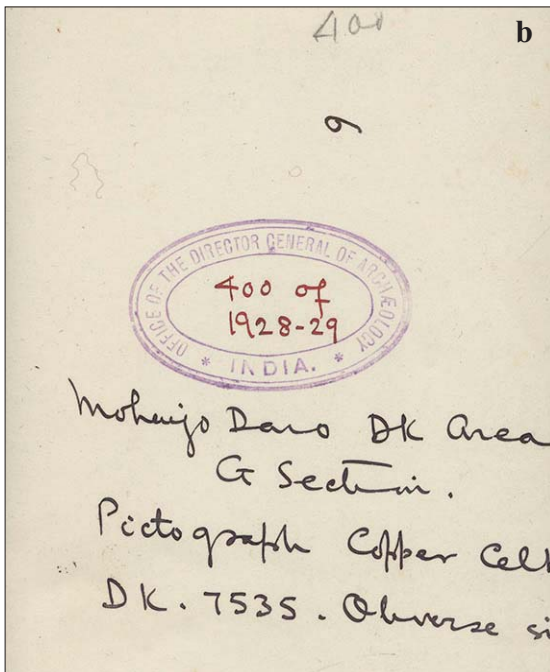 400
b
6
OFFICE OF THE DIRECTOR GENERAL OF ARCHÆOLOGY
400 of
1928-29
* INDIA. *
Mohenjo Daro DK Area
G Section.
Pictograph Copper Celt
DK. 7535. Obverse si